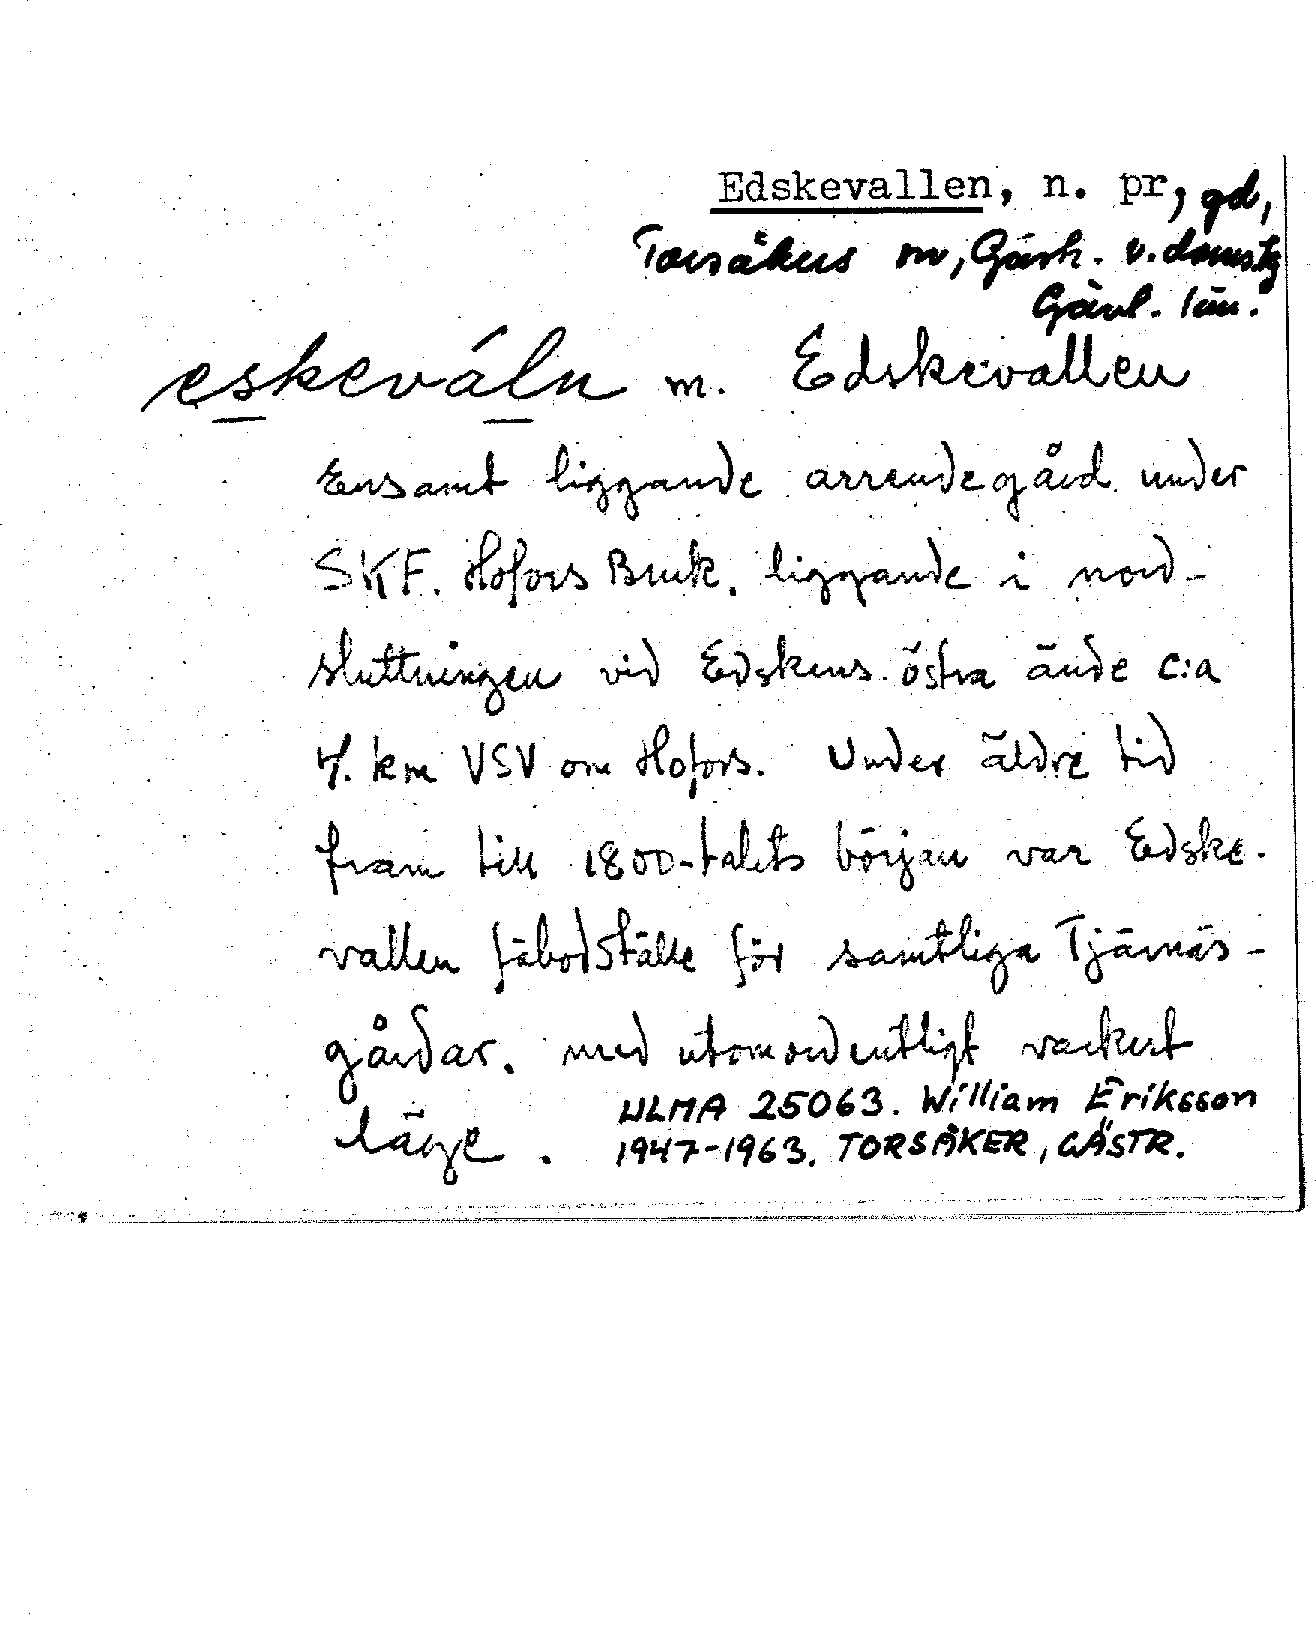 Edskevallen, n. pr, gd,
Torsåkers sn, Gästr. v. doms.tg
Gävl. län.
eskeváln m. Edskevallen
Ensamt liggande arrendegård under
SKF. Hofors Bruk. liggande i nord-
sluttningen vid Edskens östra ände c:a
4. km VSV om Hofors. Under äldre tid
fram till 1800-talets början var Edske-
vallen fäbodställe för samtliga Tjärnäs-
gårdar. med utomordentligt vackert
läge.
ULMA 25063. William Eriksson
1947-1963. TORSÅKER, GÄSTR.